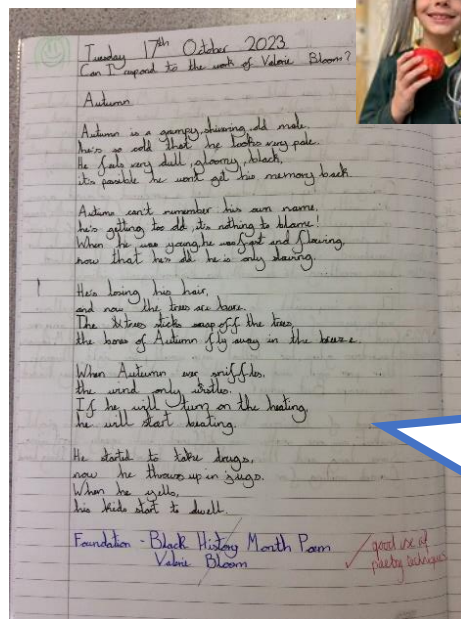 Tuesday 17th October 2023
Can I respond to the work of Valerie Bloom?
Autumn
Autumn is a grumpy, shivering old male,
he's so cold that he looks very pale.
He feels very dull, gloomy, black,
it's possible he won't get his memory back.
Autumn can't remember his own name,
he's getting too old, it's nothing to blame!
When he was young, he was fast and flowing,
now that he's old he is only slowing.
He's losing his hair,
and now the trees are bare.
The sticks snap off the trees,
the bones of Autumn fly away in the breeze.
When Autumn ever sniffles,
the wind only wistles.
If he will turn on the heating,
he will start beating.
He started to take drugs,
now he throws up in jugs.
When he yells,
his kids start to dwell.
Foundation - Black History Month Poem
Valerie Bloom
good use of
poetry techniques